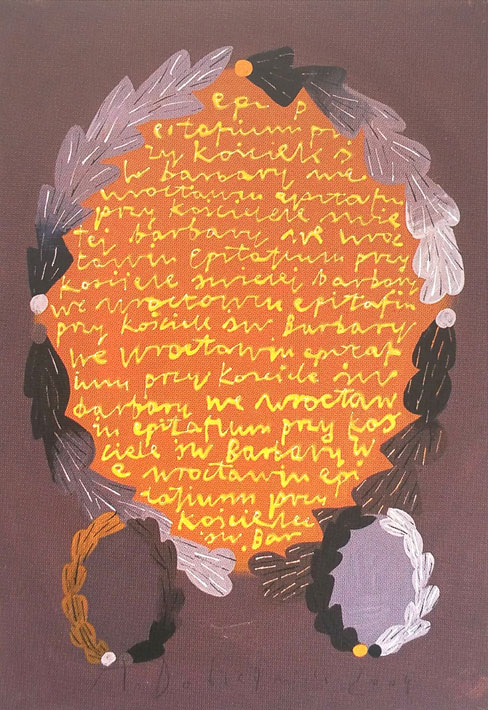 epi p
epitafium prz
zy Kościele ś
w Barbary we
wrocławiu epitafiu
przy kościele świę
tej Barbary we wroc
ławiu Epitafium przy
kościele świętej Barbary
we wrocławiu epitafiu
przy kościele św Barbary
we wrocławiu epitaf
ium przy Kościele św
Barbary we wrocław
iu epitafium przy koś
ciele św Barbary w
e wrocławiu epi
tafium przy
kościele
św. Bar